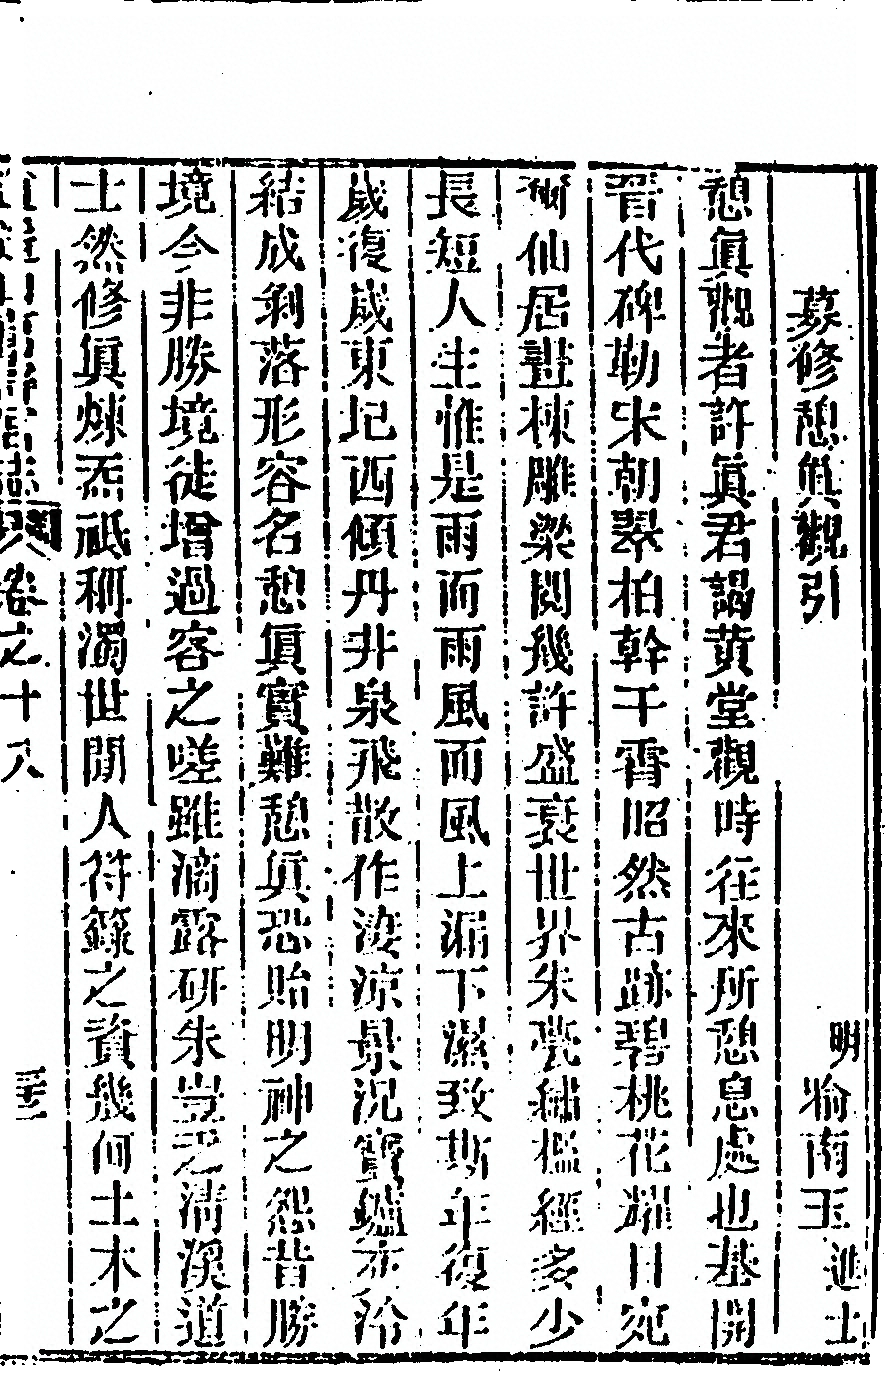 募修憩眞觀引
明 喻南玉 進士
憩眞觀者許眞君謁黄堂觀時往來所憩息處也基開
晋代碑勒宋朝翠柏幹干霄昭然古跡碧桃花耀日宛
爾仙居畫棟雕梁閱幾許盛衰世界朱甍繡檻經多少
長短人生惟是雨而雨風而風上漏下濕致斯年復年
歲復歲東圮西傾丹井泉飛散作淒涼景況寶鑪灰冷
結成剝落形容名憩眞實難憩眞恐貽明神之怨昔勝
境今非勝境徒增過客之嗟雖滴露研朱豈乏清溪道
士然修眞煉炁祗稱濁世閒人符籙之資幾何土木之
卷之十八